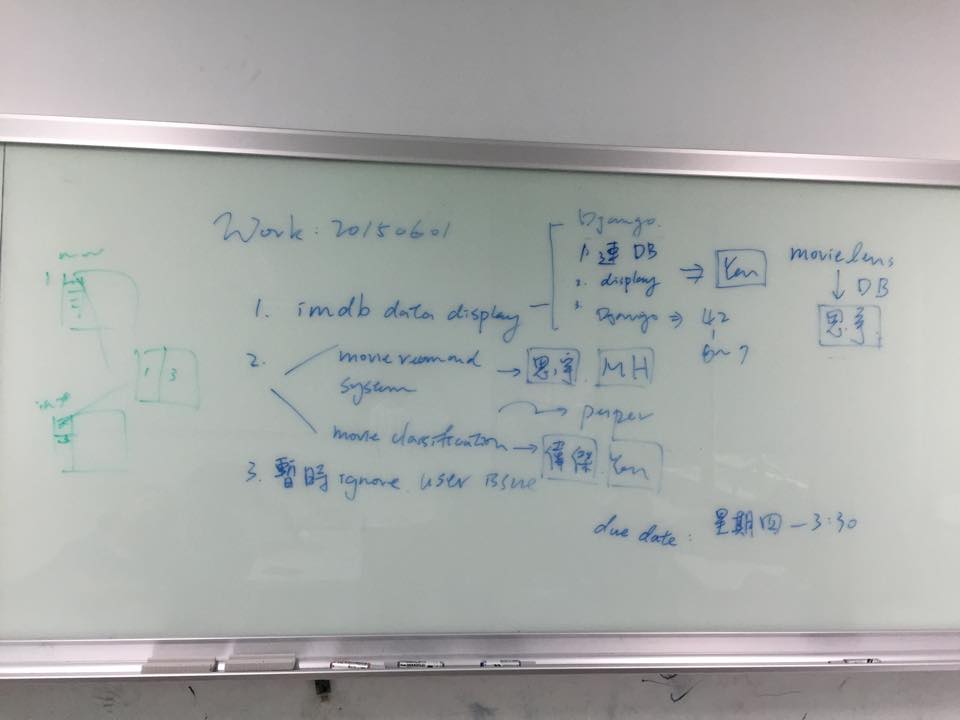 Work: 20150601
1. imdb data display
Django
1. 連 DB
2. display
3. Django ⇒ 42
⇒ Yen
movie lens
↓ DB
思宇
2.
movie recomand system → 思宇 MH
→ paper
movie classification → 偉傑 Yen
3. 暫時 ignore user issue
due date: 星期四 - 3:30
1 3